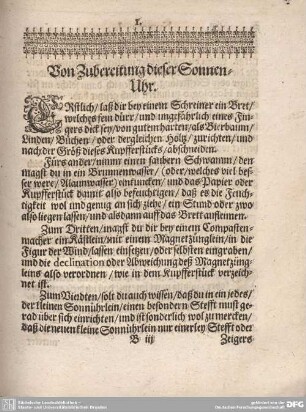 1.
Von Zubereitung dieser Sonnen-
Uhr.
ERstlich/ laß dir bey einem Schreiner ein Bret/
welches fein dürr/ und ungefährlich eines Fin-
gers dick sey/ von gutem harten/ als Bierbaum/
Linden/ Büchen/ oder dergleichen Holtz/ zurichten/ und
nach der Größ dieses Kupfferstücks/ abschneiden.
Fürs ander/ nimm einen saubern Schwamm/ den
magst du in ein Brunnenwasser/ (oder/ welches viel bes-
ser were/ Alaunwasser) eintuncken/ und das Papier oder
Kupfferstück damit also befeuchtigen/ daß es die Feuch-
tigkeit wol und genug an sich ziehe/ ein Stund oder zwo
also liegen lassen/ und alsdann auff das Brett aufleimen.
Zum Dritten/ magst du dir bey einem Compasten-
macher ein Kästlein/ mit einem Magnetzünglein/ in die
Figur der Wind/ lassen einsetzen/ oder selbsten eingraben/
und die declination oder Abweichung deß Magnetzüng-
leins also verordnen/ wie in dem Kupfferstück verzeich-
net ist.
Zum Vierdten/ solt du auch wissen/ daß du in ein jedes/
der kleinen Sonnührlein/ einen besondern Stefft must ge-
rad über sich einrichten/ und ist sonderlich wol zu mercken/
daß die neun kleine Sonnührlein nur einerley Stefft oder
B iij Zeigers
Sächsische Landesbibliothek -
Staats- und Universitätsbibliothek Dresden
gefördert von der
Deutschen Forschungsgemeinschaft
DFG